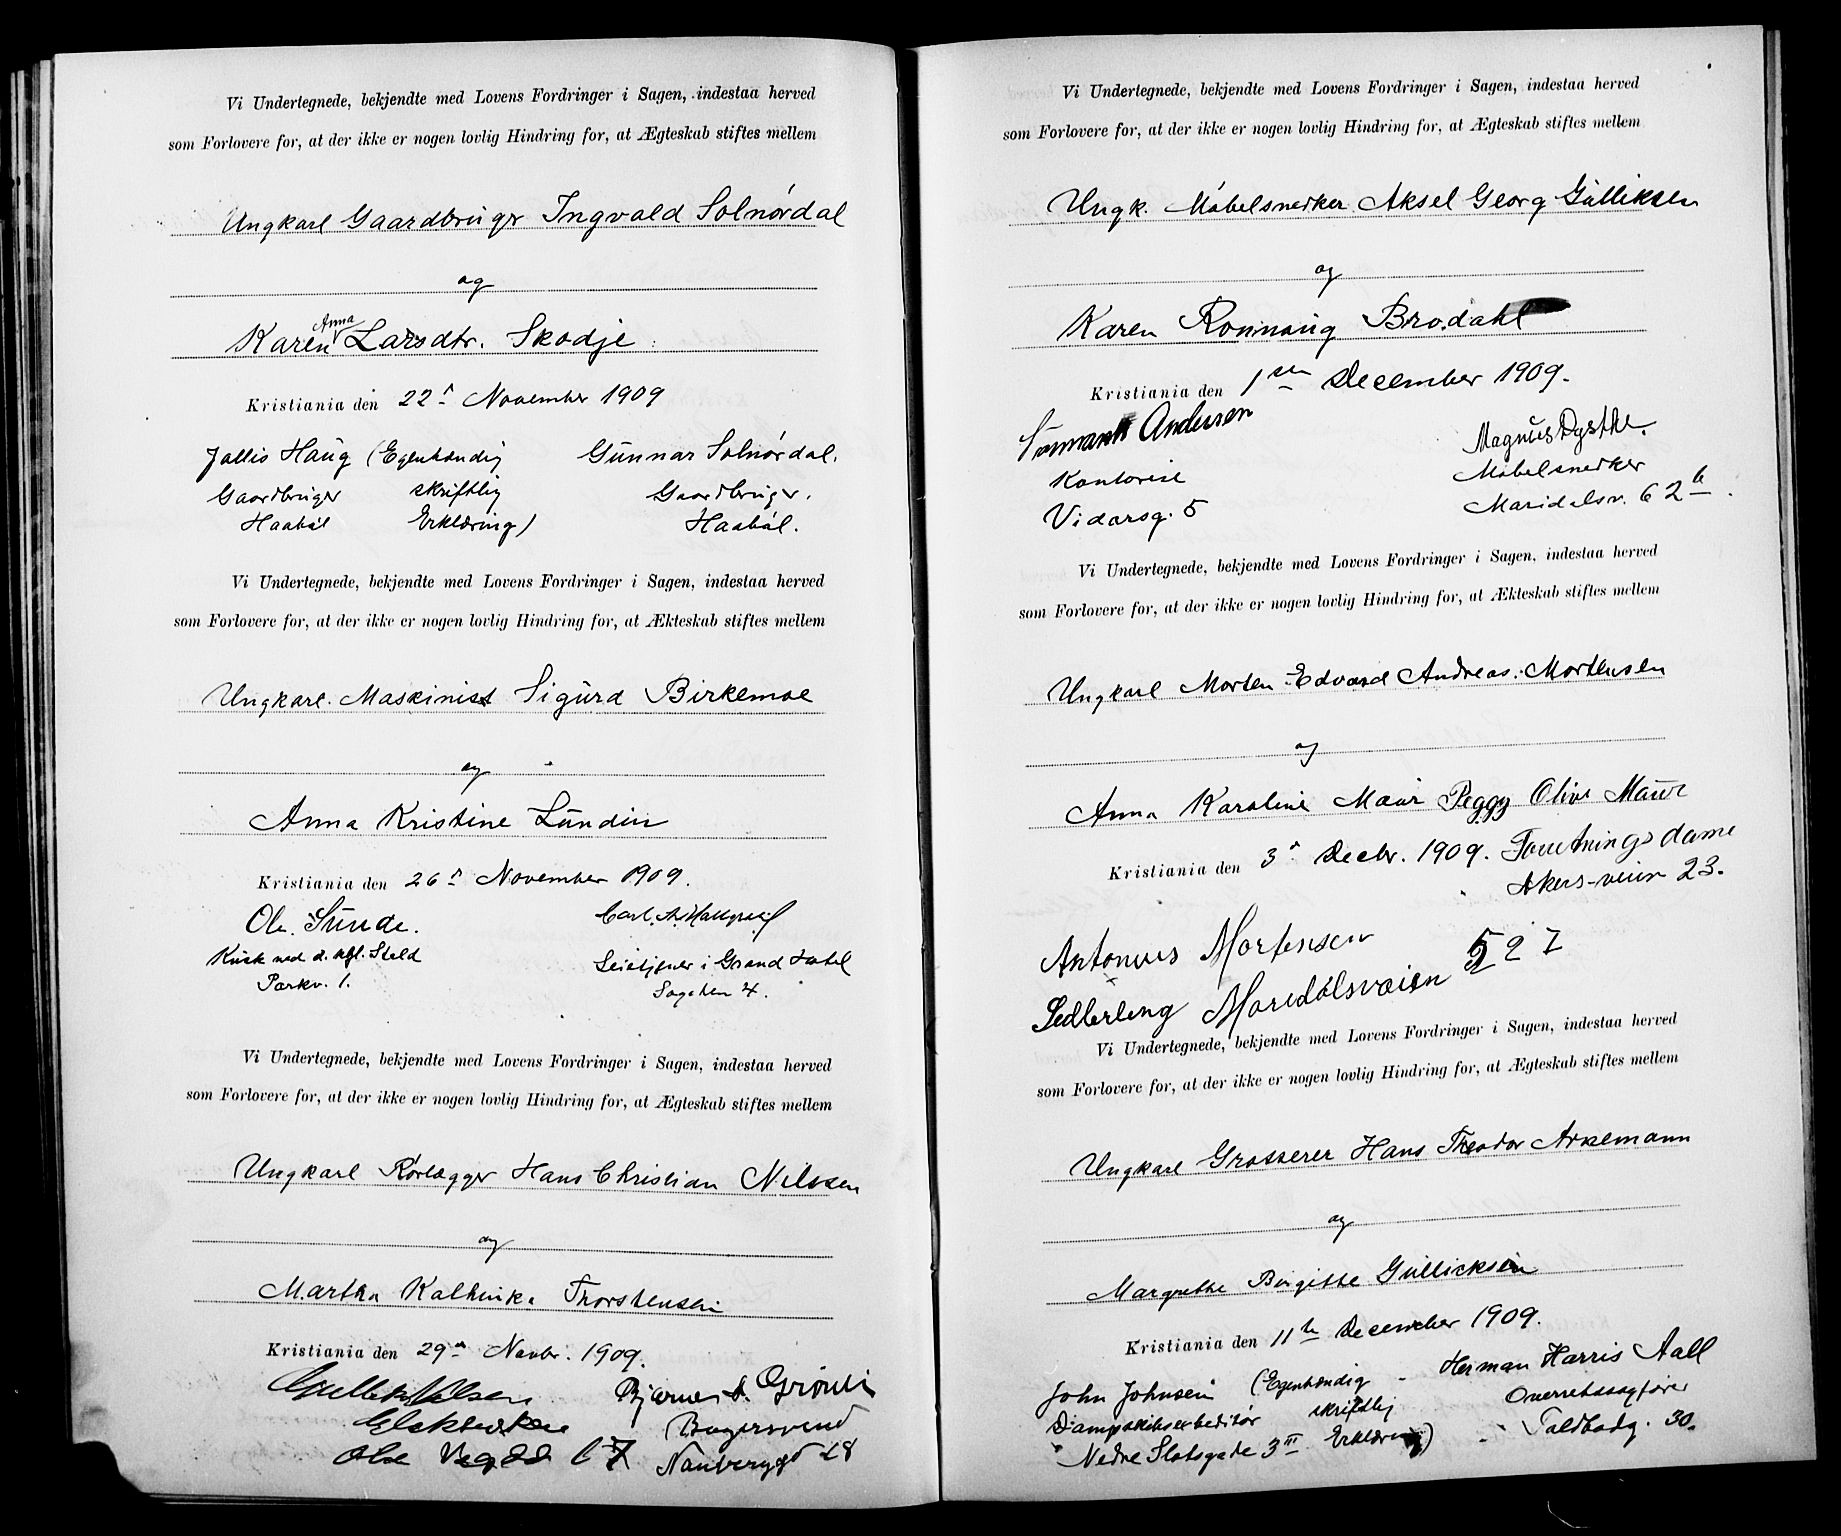 Vi Undertegnede, bekjendte med Lovens Fordringer i Sagen, indestaa herved
som Forlovere for, at der ikke er nogen lovlig Hindring for, at Ægteskab stiftes mellem
Ungkarl Gaardbruger Ingvald Solnørdal
og
Anna
Karen Larsdtr. Skodje
Kristiania den 22d November 1909
Haug (Egenhændig Gunnar Solnørdal.
Gaardbruger skriftlig Gaardbruger.
Haabøl Erklæring) Haabøl.
Vi Undertegnede, bekjendte med Lovens Fordringer i Sagen, indestaa herved
som Forlovere for, at der ikke er nogen lovlig Hindring for, at Ækteskab stiftes mellem
Ungkarl. Maskinist Sigurd Birkemoe
og
Anna Kristine Lundin
Kristiania den 26d November 1909.
Ole Sunde. Carl
Kusk ved d. kgl. Stald i Grand Hotel
Parkv. 1. 4.
Vi Undertegnede, bekjendte med Lovens Fordringer i Sagen, indestaa herved
som Forlovere for, at der ikke er nogen lovlig Hindring for, at Ægteskab stiftes mellem
Ungkarl Rørlægger Hans Christian Nilssen
og
Martha Kathinka Thorstensen
Kristiania den 29de Novbr. 1909.
Bjarne A.
Bagersvend
Vi Undertegnede, bekjendte med Lovens Fordringer i Sagen, indestaa herved
som Forlovere for, at der ikke er nogen lovlig Hindring for, at Ægteskab stiftes mellem
Ungk. Møbelsnedker Aksel Georg Gulliksen
og
Karen Ronnaug Brodahl
Kristiania den 1ste December 1909.
Andersen Magnus Dysthe.
Kontorist Møbelsnedker
Vidarsg. 5 Maridalsv. 62b.
Vi Undertegnede, bekjendte med Lovens Fordringer i Sagen, indestaa herved
som Forlovere for, at der ikke er nogen lovlig Hindring for, at Ækteskab stiftes mellem
Ungkarl Morten Edvard Andreas Mortensen
og
Anna Karoline Maur Peggy Olive Maur
Kristiania den 3d Decbr. 1909. Forretningsdame
Akers-veien 23.
Antonius Mortensen 52
Maridalsveien
Vi Undertegnede, bekjendte med Lovens Fordringer i Sagen, indestaa herved
som Forlovere for, at der ikke er nogen lovlig Hindring for, at Ægteskab stiftes mellem
Ungkarl Grosserer Hans Theodor Arkemann
og
Margrethe Birgitte Gullicksen
Kristiania den 11te December 1909.
John Johnsen (Egenhændig Herman Harris Aall
Dampskibsexpeditør skriftlig Overretssagfører
Nedre Slotsgade 3III Erklæring) Toldbodg. 30.